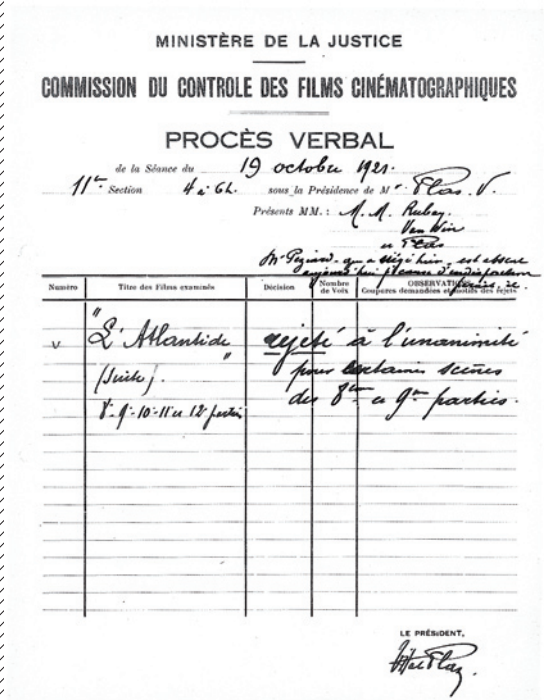 MINISTÈRE DE LA JUSTICE
COMMISSION DU CONTROLE DES FILMS CINÉMATOGRAPHIQUES
PROCÈS VERBAL
de la Séance du 19 octobre 1921.
11e Section 4 à 6h. sous la Présidence de Mr Plas. V.
Présents MM.: M. M. Rubay.
Van Win
et Plas
Mr qui a siégé hier, est absent
aujourd'hui
Numéro Titre des Films examinés Décision Nombre de Voix OBSERVATIONS Coupures demandées et motifs des rejets
v "L'Atlantide" rejeté à l'unanimité
(suite). pour certaines scènes
8-9-10-11 et 12e parties des 8me et 9me parties.
LE PRÉSIDENT,